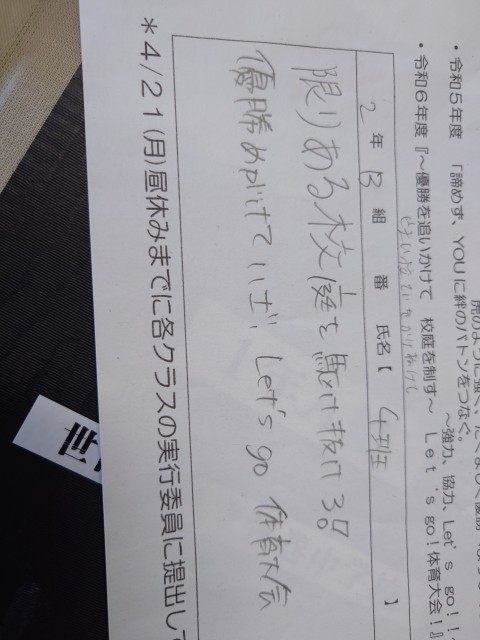 虎のように強く、たくましく優勝
・令和５年度 「諦めず、YOUに絆のバトンをつなぐ。
～強力、協力、Let’s go！！
・令和６年度『～優勝を追いかけて 校庭を制す～ Let’s go！体育大会！』
2 年 B 組 番 氏名【 4班 】
限りある校庭を駆け抜けろ!!
優勝めがけていざ! Let's go 体育大会
＊4/21(月)昼休みまでに各クラスの実行委員に提出して